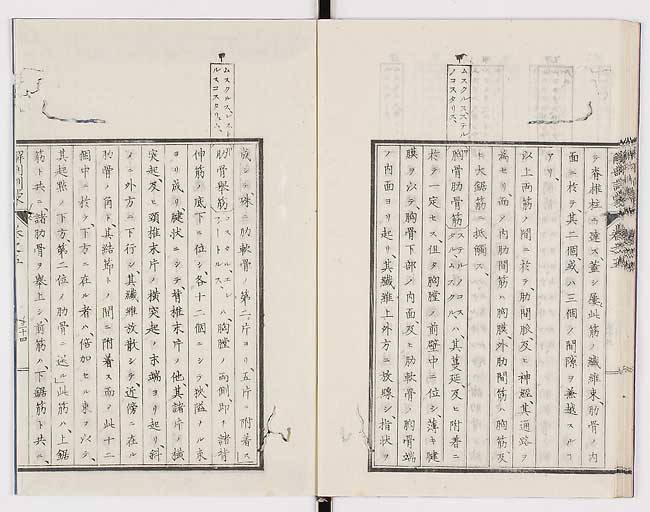 テ脊椎柱ニ達ス蓋シ屢此筋ノ纖維束肋骨ノ内
面ニ於テ其二個、或ハ三個ノ間隙ヲ兼越スルコ
アリ、
以上両筋ノ間ニ於テ、肋間脈及ヒ神經、其通路ヲ
為セリ、而ノ内肋間筋ハ胸膜、外肋間筋ハ胸筋及
ヒ大鋸筋ニ抵觸ス、
ムスクルスステル
ノコスタリス、
胸骨肋骨筋ハ、其蔓延、及ヒ附着ニ
於テ一定セス、但タ胸膛ノ前壁中ニ位シ、薄キ腱
膜ヲ以テ、胸骨下部ノ内面及ヒ肋軟骨ノ胸骨端
ノ内面ヨリ起リ、其纖維上外方ニ放線シ、指状ヲ
ルスコスタリュム、
成シテ、殊ニ肋軟骨ノ第二片ヨリ五片ニ附着ス
肋骨擧筋ハ胸膛ノ両側、即チ諸背
伸筋ノ底下ニ位シ、各十二個ニシテ、狹隘ナル束
ヨリ成リ、腱状ニシテ、背椎末片ノ他、其諸片ノ横
突起、及ヒ頚椎末片ノ横突起ノ末端ヨリ起リ、斜
ニ外方ニ下行シ、其纖維放散シテ、近傍ニ在ル
肋骨ノ角ト、其結節トノ間ニ附着ス而ヲ此十二
個中ニ於テ、下方ニ在ル者ハ、倍加セル束ヲ以テ、
其起點ノ下方第二位ノ肋骨ニ送ル、此筋ハ上鋸
筋ト共ニ、諸肋骨ヲ擧上シ、前筋ハ、下鋸筋ト共ニ、